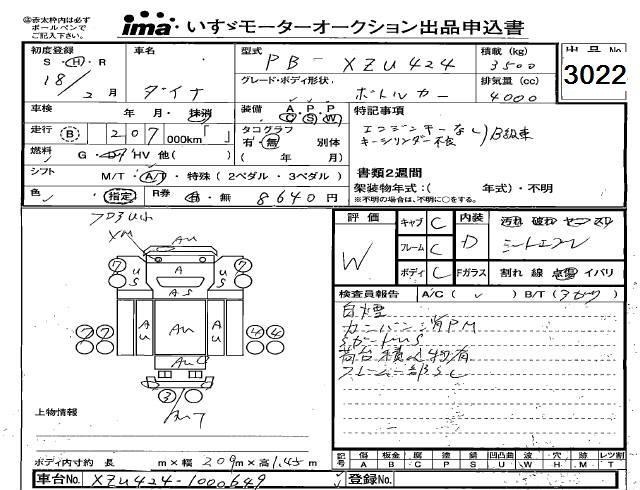 ④赤太枠内は必ず
ボールペンで
ご記入下さい。
ima いすゞモーターオークション出品申込書
初度登録
S・H・R
18/2月
車名
ダイナ
型式
PB-XZU424
積載(kg)
3500
出品No
3022
グレード・ボディ形状
ボトルカー
排気量(cc)
4000
車検
年・月・抹消
装備
A P P
C S W
特記事項
エンジンキーなし
キーシリンダー不良
B級車
走行
B
207
000km「 」
タコグラフ
有・無 別体
( 年 月)
燃料
G・D・HV 他( )
シフト
M/T・A/T・特殊(2ペダル・3ペダル)
書類2週間
架装物年式:( 年式)・不明
※不明の場合は、不明に○をする。
色
(指定)
R券
有・無
8640円
評価
W
キャブ C
フレーム C
ボディ C
内装
D
汚れ 破れ
Fガラス
割れ 線 点雪 イバリ
検査員報告
A/C( ✓ ) B/T( )
白煙
荷台積込物有
フレーム部SC
AU
A
AS
US
US
AU
AU
AU
AUC
⑦ ⑦
⑦⑦ ④④
③
上物情報
ボディ内寸約 長 m×幅 2.09m×高 1.45m
記号
傷 A
板金 B
腐 C
塗 P
錆 S
凹凸曲 U
波 W
穴 H
・跡 ・M
レツ割 T
車台No.
XZU424-1000649
登録No.